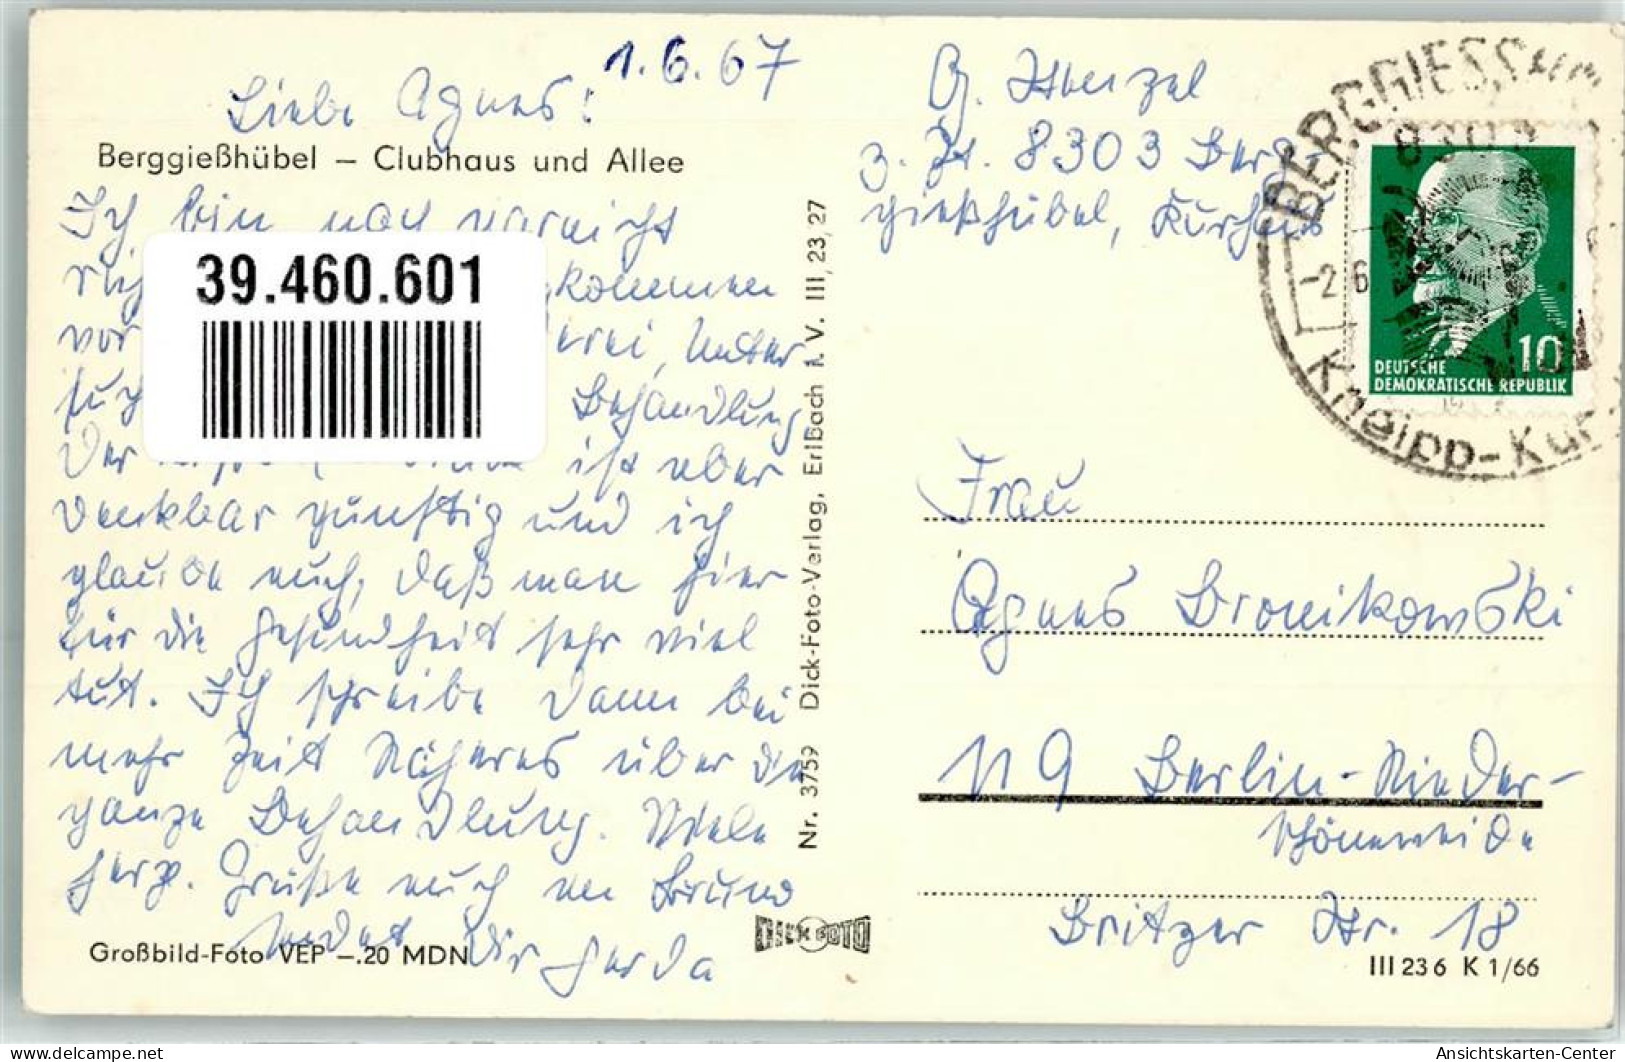 1.6.67
Liebe Agnes!
Berggießhübel – Clubhaus und Allee
Ich bin noch gar nicht
rich
39.460.601
kommen
vor
erei, Unter
such
Behandlung
Der
ist aber
denkbar günstig und ich
glaube auch, daß man hier
für die Gesundheit sehr viel
tut. Ich schreibe dann bei
mehr Zeit Näheres über die
ganze Behandlung. Viele
herzl. Grüße auch an Bruno
sendet Dir Gerda
Großbild-Foto VEP –.20 MDN
Nr. 3759 Dick-Foto-Verlag, Erlbach i. V. III, 23, 27
DICK FOTO
G.
z. Zt. 8303 Berg-
gießhübel, Kurhaus
BERGGIESSHÜ
8303
-2.6
Kneipp-Kur
DEUTSCHE
DEMOKRATISCHE REPUBLIK
10
Frau
Agnes Bronikowski
119 Berlin-Nieder-
schöneweide
Britzer Str. 18
III 23 6 K 1/66
Ansichtskarten-Center